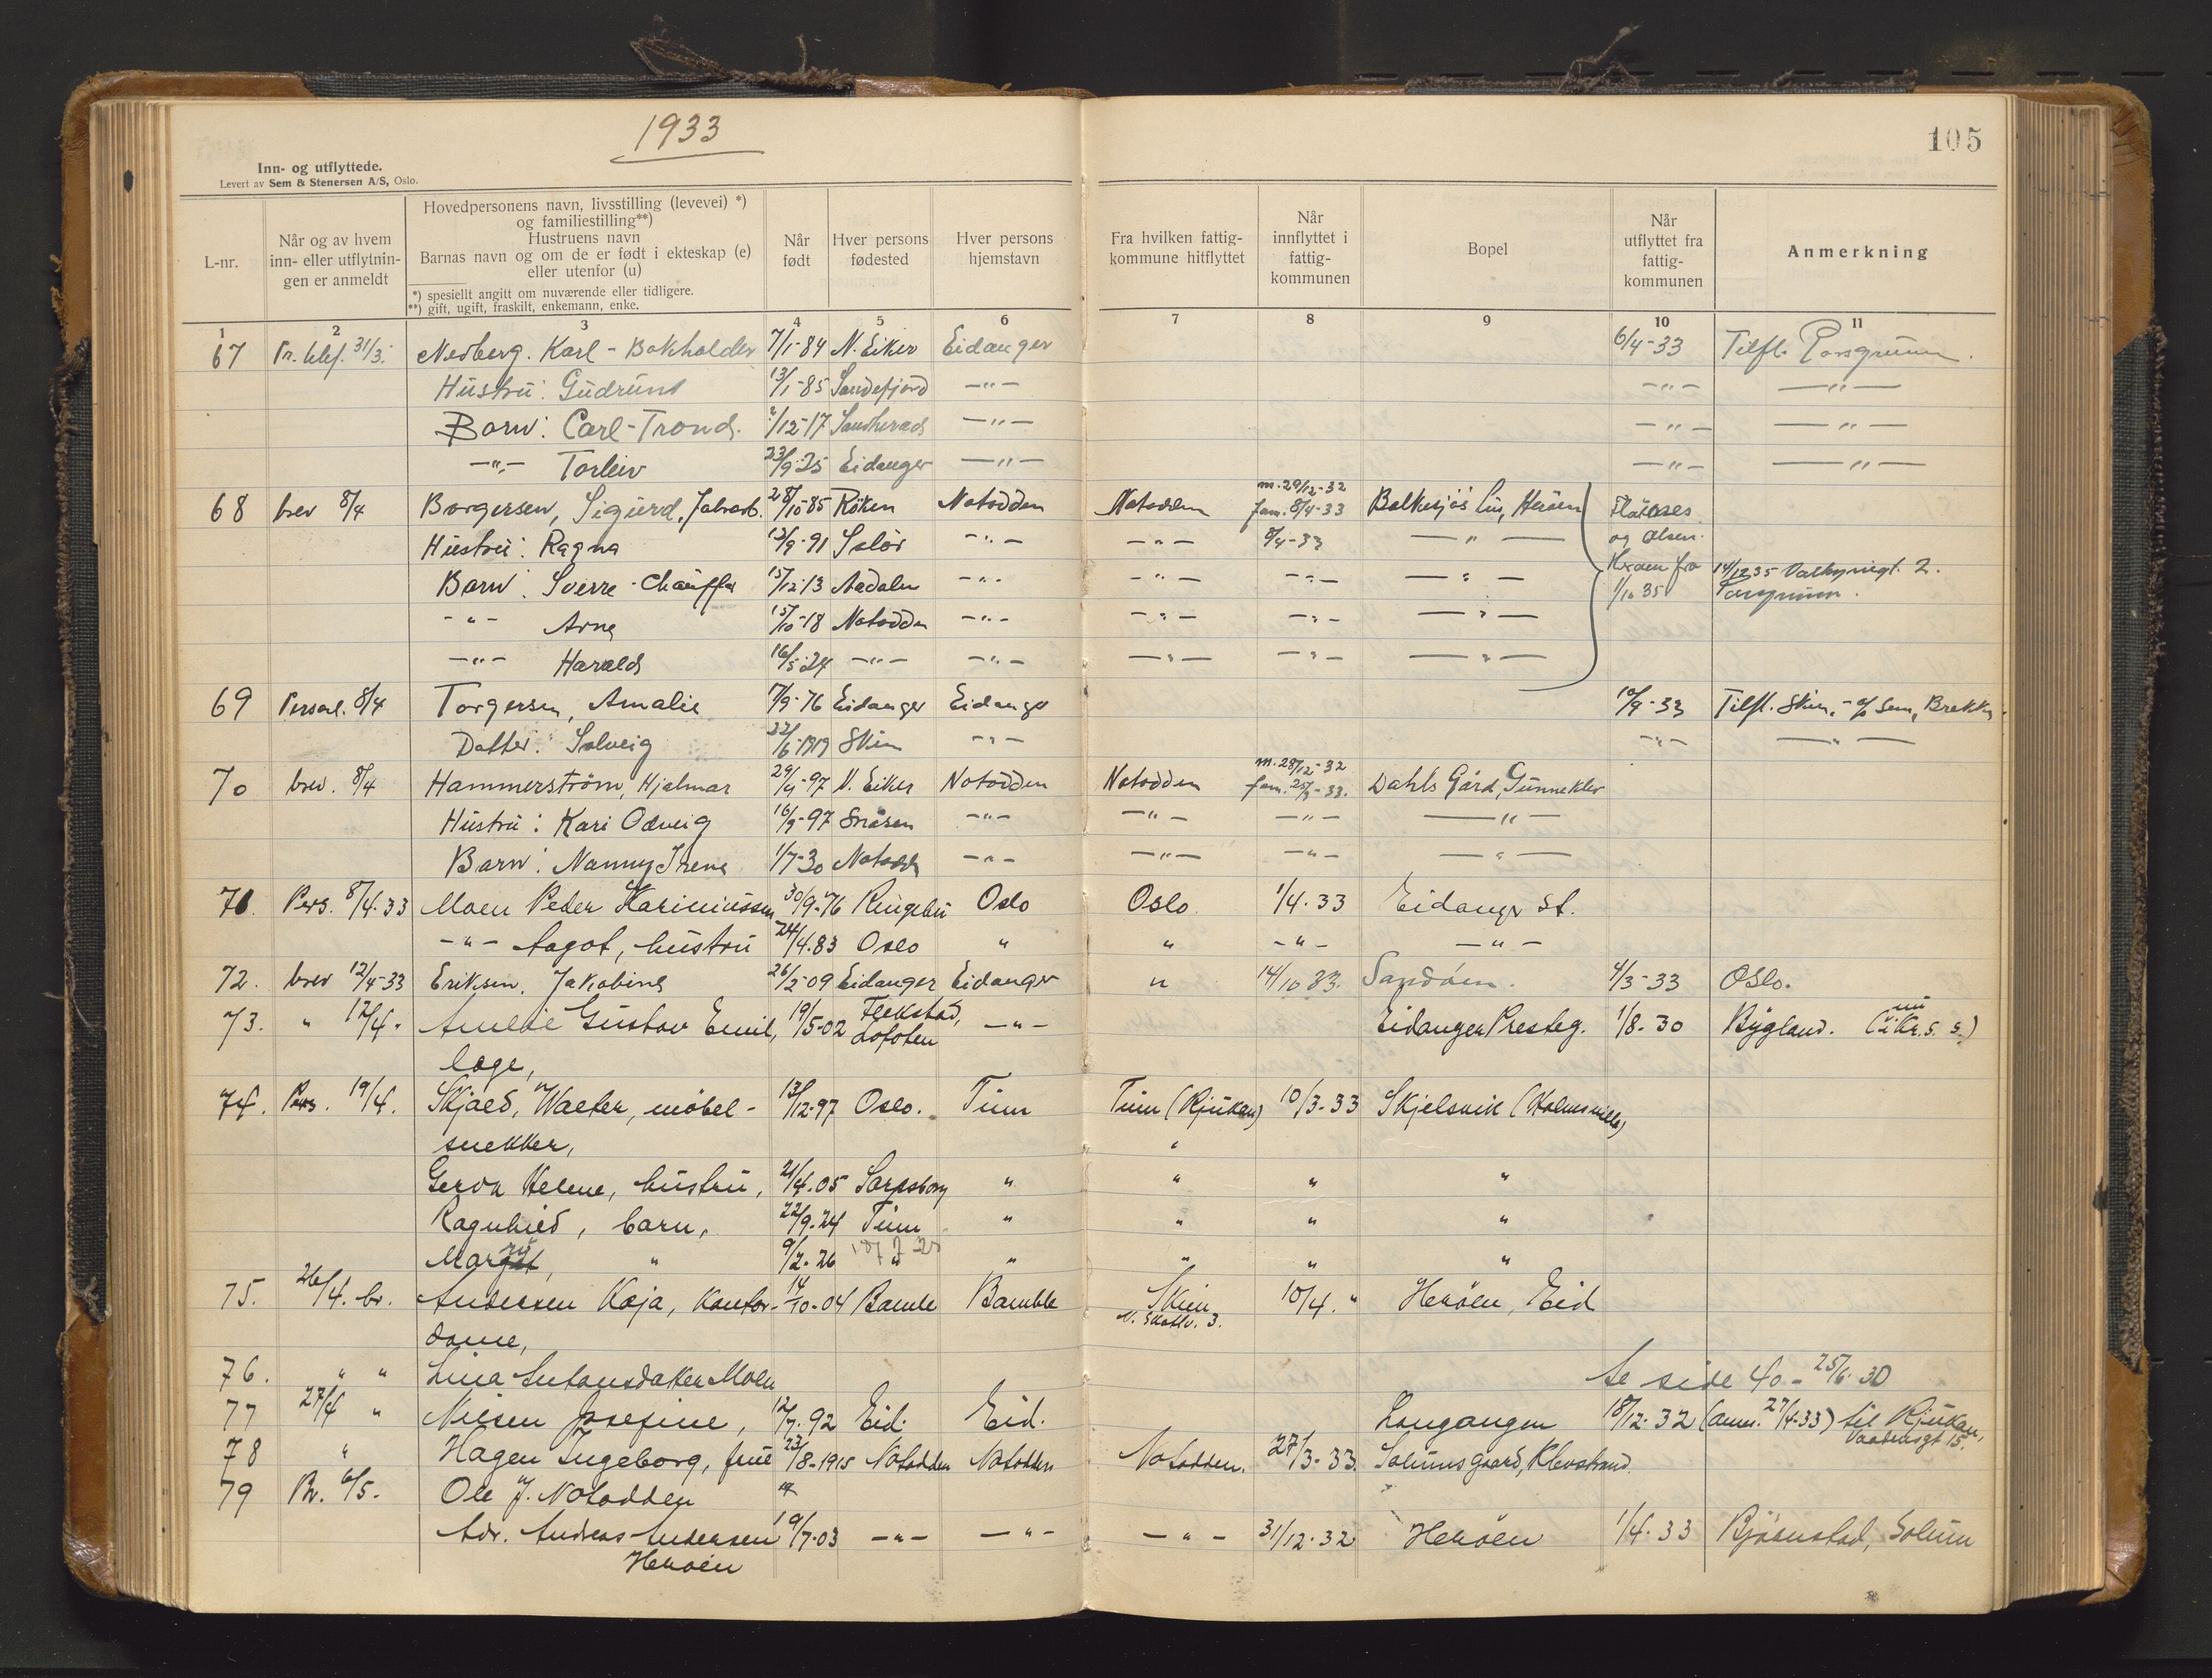 1933
105
Inn- og utflyttede.
Levert av Sem & Stenersen A/S, Oslo.
L-nr.
Når og av hvem inn- eller utflytnin- gen er anmeldt
Hovedpersonens navn, livsstilling (levevei) *)
og familiestilling**)
Hustruens navn
Barnas navn og om de er født i ekteskap (e)
eller utenfor (u)
*) spesiellt angitt om nuværende eller tidligere.
**) gift, ugift, fraskilt, enkemann, enke.
Når født
Hver persons fødested
Hver persons hjemstavn
Fra hvilken fattig- kommune hitflyttet
Når innflyttet i fattig- kommunen
Bopel
Når utflyttet fra fattig- kommunen
Anmerkning
1 2 3 4 5 6 7 8 9 10 11
67 Pr. telef. 31/3. Nedberg. Karl - Bokholder 7/1-84 N. Eiker Eidanger 6/4-33 Tilfl. Porsgrunn.
Hustru: Gudrund 13/1-85 Sandefjord -"- -"- -"-
Barn: Carl-Trond. /12-17 Sauherad -"- -"- -"-
-"- Torleiv 23/9-25 Eidanger -"- -"- -"-
68 brev 8/4 Borgersen, Sigurd, Fabrarb. 28/10-85 Röken Notodden Notodden m. 29/12-32 fam. 8/4-33 Bolkesjös Hus, Heröen
Hustru: Ragna 13/9-91 Solör -"- -"- 8/4-33 -"- og Olsen.
Barn: Sverre - Chauffør 15/12-13 Aadalen -"- -"- -"- -"- Heröen fra 1/10 35 14/12 35 Porsgrunn.
-"- Arne 15/10-18 Notodden -"- -"- -"- -"-
-"- Harald 16/5-24 -"- -"- -"- -"- -"-
69 Personl. 8/4 Torgersen, Amalie 17/9-76 Eidanger Eidanger 10/9-33 Tilfl. Skien, - c/o Sem, Brekky.
Datter: Solveig 22/6-1919 Skien -"- -"- -"-
70 brev. 8/4 Hammerström, Hjalmar 29/4-97 N. Eiker Notodden Notodden m. 28/12-32 fam. 25/3-33. Dahls Gård, Gunneklev
Hustru: Kari Odveig 16/9-97 Snåsen -"- -"- -"- -"-
Barn: Nanny Irene 1/7-30 Notodden -"- -"- -"- -"-
71. Pers. 8/4.33 Moen Peder Kariniussen 30/9-76 Ringebu Oslo Oslo. 1/4.33 Eidanger st.
-"- Aagot, hustru 24/4.83 Oslo " " -"- -"-
72. brev 12/4-33 Eriksen. Jakobine 26/2-09 Eidanger Eidanger " 14/10 33. Sandöen. 4/3-33 Oslo.
73. " 12/4. Amelie Gustav Emil, 19/5-02 Flekstad, Lofoten -"- Eidanger Presteg. 1/8-30 Bygland. (nu i Kr. s. s.)
lege,
74. Pers. 19/4. Skjæd, Walter, möbel- 13/12-97 Oslo. Tinn Tinn (Rjukan) 10/3-33 Skjelsvik (Holmsvilla)
snekker, "
Gerda Helene, hustru, 21/4.05 Sarpsborg " " " "
Ragnhild, barn, 22/9-24 Tinn " " " "
Margrit, " 9/2.26 " " " " "
75. 26/4. br. Andersen Kaja, kontor- 14/10-04 Bamble Bamble Skien N. Skotlv. 3. 10/4. " Heröen, Eid
dame,
76. " " Lina Antonsdatter Moen Se side 40 - 25/6.30
77 27/4 " Nilsen Josefine, 12/7.92 Eid. Eid. Langangen 18/12.32 (anm. 27/4-33) til Rjukan,
78 " Hagen Ingeborg, frue 23/8-1915 Notodden Notodden Notodden. 27/3-33. Solumsgaard, Klevstrand.
79 Br. 6/5. Ole J. Notodden "
Adr. Andreas Andersen 19/7.03 -"- -"- -"- 31/12.32 Heröen 1/4.33 Bjørnstad, Solum
Heröen